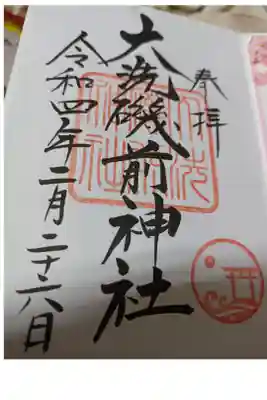 奉拝
大洗磯前神社
令和四年二月二十六日